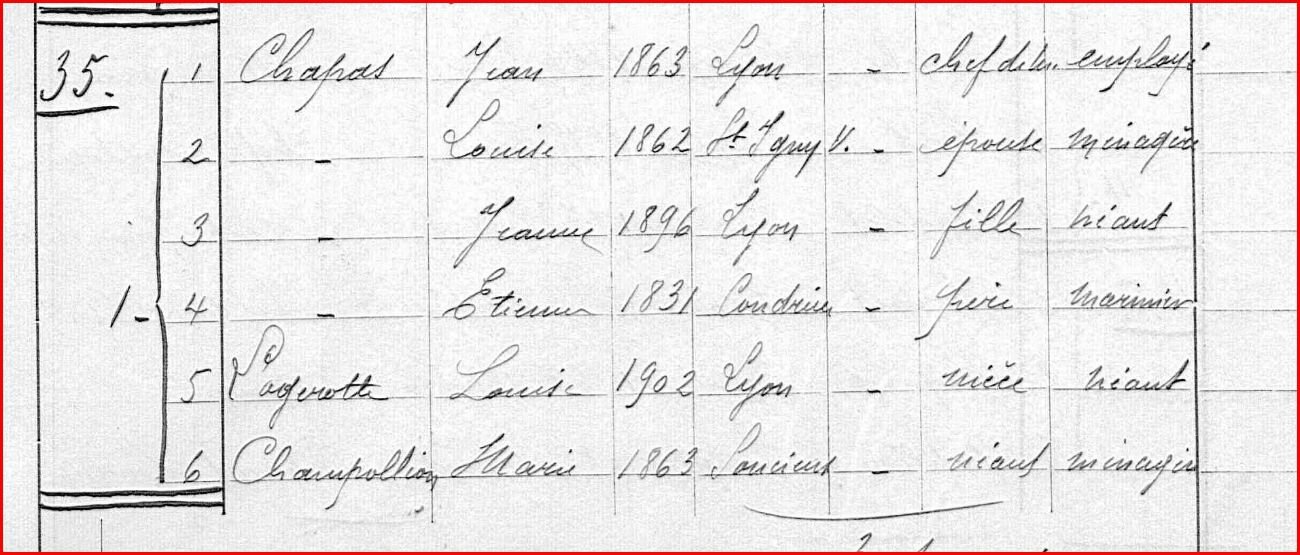 35. 1 Chapas Jean 1863 Lyon - chef de m. employé
2 - Louise 1862 St Igny V. - épouse ménagère
3 - Jeanne 1896 Lyon - fille néant
1 - 4 - Etienne 1831 Condrieu - père marinier
5 Pagerotte Louise 1902 Lyon - nièce néant
6 Champollion Marie 1863 Soucieux - néant ménagère